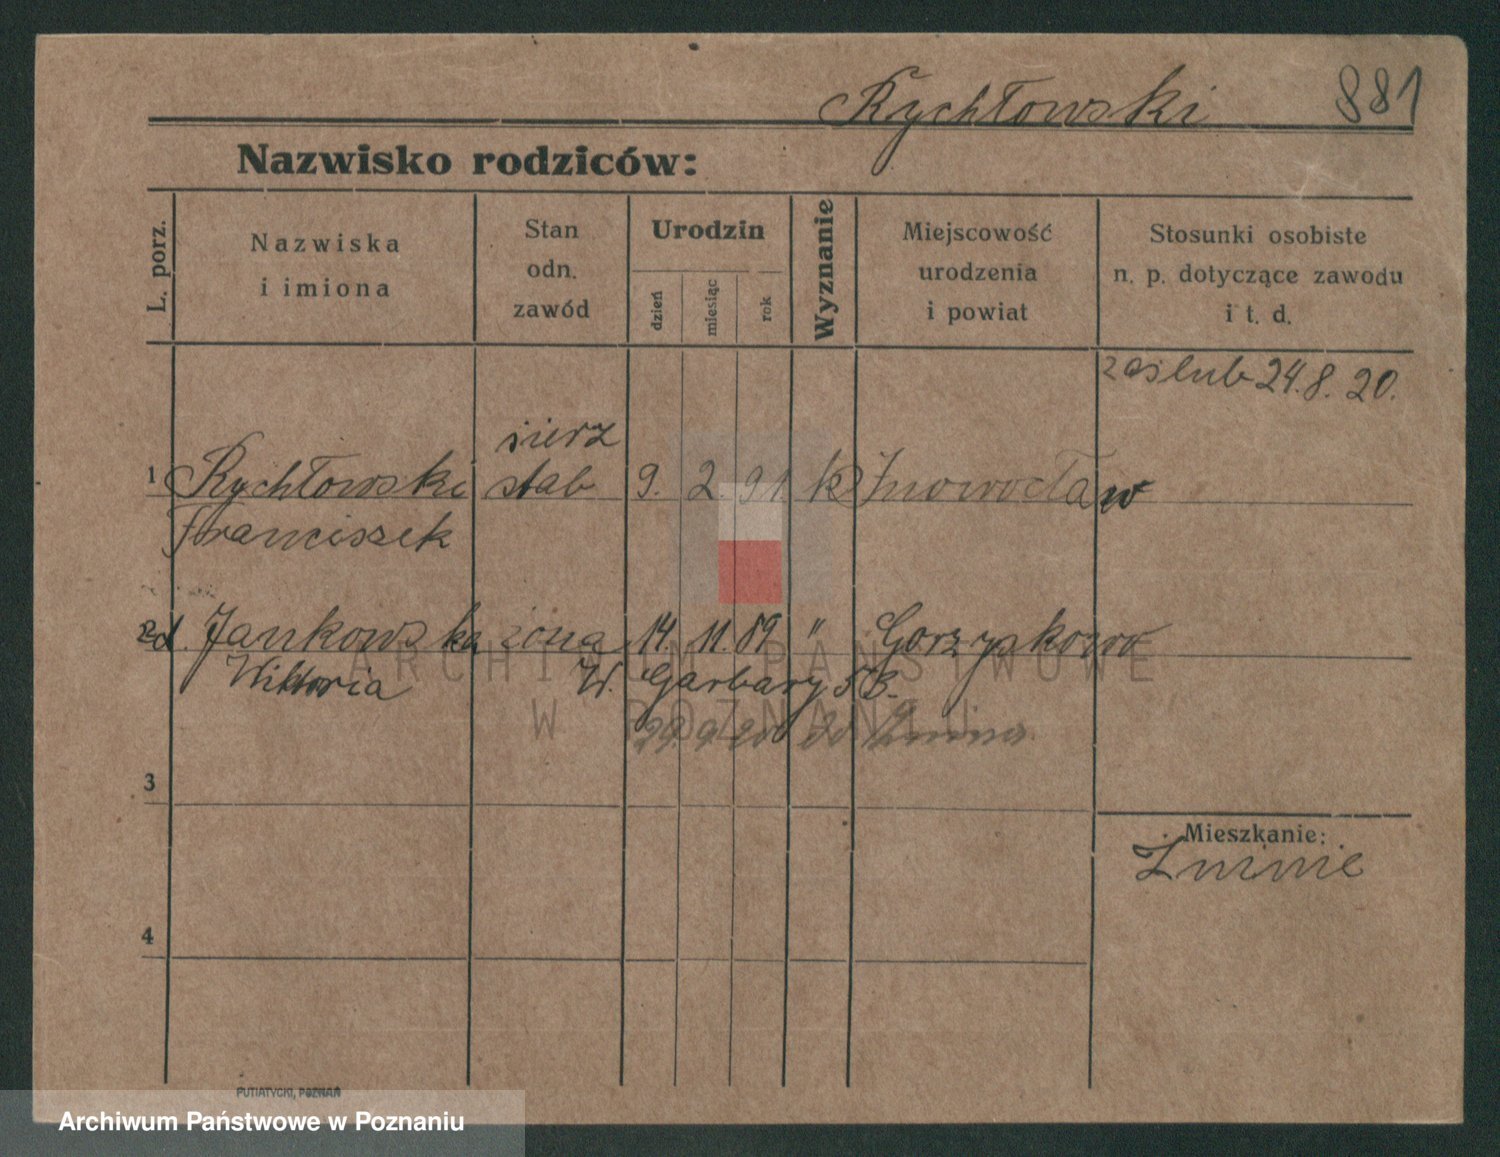 Rychłowski 881
Nazwisko rodziców:
L. porz.
Nazwiska
i imiona
Stan
odn.
zawód
Urodzin
dzień
miesiąc
rok
Wyznanie
Miejscowość
urodzenia
i powiat
Stosunki osobiste
n. p. dotyczące zawodu
i t. d.
zaślub 24.8.20.
sierz
1 Rychłowski stab 9. 2. 91. k Inowocław
Franciszek
2 Jankowska żona 14. 11. 89 " Gorzykowo
Wiktoria W. Garbary 53.
29. 9. 20 do Żnina
3
Mieszkanie:
Żninie
4
PUTIATYCKI, POZNAŃ
ARCHIWUM PAŃSTWOWE
W POZNANIU
Archiwum Państwowe w Poznaniu